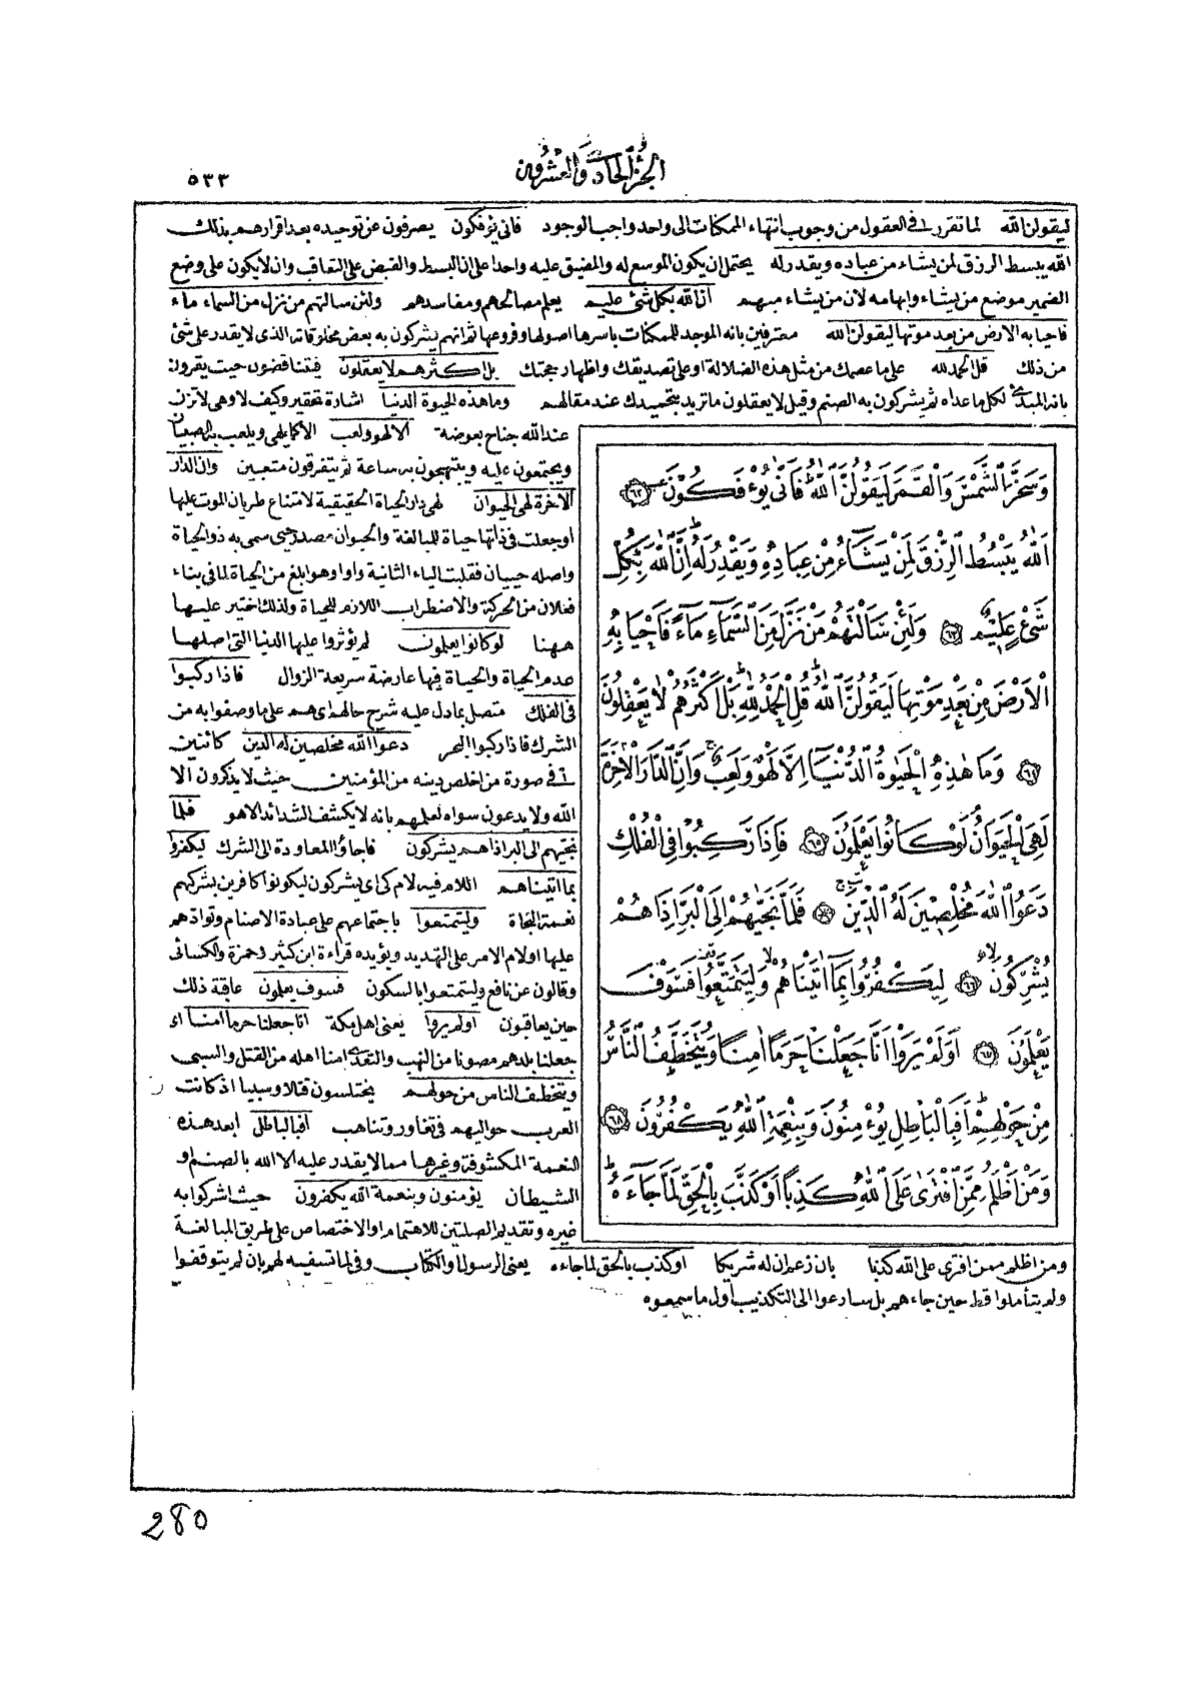 الجزء الحادي والعشرون
٥٣٣
ليقولن الله لما تقرر في العقول من وجوب انتهاء الممكنات الى واحد واجب الوجود فانى يؤفكون يصرفون عن توحيده بعد اقرارهم بذلك
الله يبسط الرزق لمن يشاء من عباده ويقدر له يحتمل ان يكون الموسع له والمضيق عليه واحدا على ان البسط والقبض على التعاقب وان لا يكون على وضع
الضمير موضع من يشاء وابهامه لان من يشاء مبهم ان الله بكل شئ عليم يعلم مصالحهم ومفاسدهم ولئن سالتهم من نزل من السماء ماء
فاحيا به الارض من بعد موتها ليقولن الله معترفين بانه الموجد للممكنات باسرها اصولها وفروعها ثم انهم يشركون به بعض مخلوقاته الذى لا يقدر على شئ
من ذلك قل الحمد لله على ما عصمك من مثل هذه الضلالة او على تصديقك واظهار حجتك بل اكثرهم لا يعقلون فيتناقضون حيث يقرون
بانه المبدئ لكل ما عداه ثم يشركون به الصنم وقيل لا يعقلون ما تريد بتحميدك عند مقالهم وما هذه الحيوة الدنيا اشارة تحقير وكيف لا وهى لا تزن
عند الله جناح بعوضة الا لهو ولعب الا كما يلهى ويلعب به الصبيان
ويجتمعون عليه ويبتهجون به ساعة ثم يتفرقون متعبين وان الدار
الآخرة لهى الحيوان لهى دار الحياة الحقيقية لامتناع طريان الموت عليها
او جعلت فى ذاتها حياة للمبالغة والحيوان مصدر حيى سمى به ذو الحياة
واصله حييان فقلبت الياء الثانية واوا وهو ابلغ من الحياة لما فى بناء
فعلان من الحركة والاضطراب اللازم للحياة ولذلك اختير عليها
ههنا لو كانوا يعلمون لم يؤثروا عليها الدنيا التى اصلها
عدم الحياة والحياة فيها عارضة سريعة الزوال فاذا ركبوا
فى الفلك متصل بما دل عليه شرح حالهم اى هم على ما وصفوا به من
الشرك فاذا ركبوا البحر دعوا الله مخلصين له الدين كائنين
فى صورة من اخلص دينه من المؤمنين حيث لا يذكرون الا
الله ولا يدعون سواه لعلمهم بانه لا يكشف الشدائد الا هو فلما
نجيهم الى البر اذا هم يشركون فاجاؤا المعاودة الى الشرك ليكفروا
بما اتيناهم اللام فيه لام كى اى يشركون ليكونوا كافرين بشركهم
نعمة النجاة وليتمتعوا باجتماعهم على عبادة الاصنام وتوادهم
عليها او لام الامر على التهديد ويؤيده قراءة ابن كثير وحمزة والكسائى
وقالون عن نافع وليتمتعوا بالسكون فسوف يعلمون عاقبة ذلك
حين يعاقبون اولم يروا يعنى اهل مكة انا جعلنا حرما امنا اى
جعلنا بلدهم مصونا من النهب والتعدى امنا اهله من القتل والسبى
ويتخطف الناس من حولهم يختلسون قتلا وسبيا اذ كانت
العرب حواليهم فى تغاور وتناهب افبالباطل ابعد هذه
النعمة المكشوفة وغيرها مما لا يقدر عليه الا الله بالصنم او
الشيطان يؤمنون وبنعمة الله يكفرون حيث اشركوا به
غيره وتقديم الصلتين للاهتمام او الاختصاص على طريق المبالغة
وَسَخَّرَ الشَّمْسَ وَالْقَمَرَ لَيَقُولُنَّ اللّٰهُ فَاَنّٰى يُؤْفَكُونَ ﴿٦٢﴾
اَللّٰهُ يَبْسُطُ الرِّزْقَ لِمَنْ يَشَٓاءُ مِنْ عِبَادِهِ وَيَقْدِرُ لَهُ اِنَّ اللّٰهَ بِكُلِّ
شَىْءٍ عَلِيمٌ ﴿٦٣﴾ وَلَئِنْ سَاَلْتَهُمْ مَنْ نَزَّلَ مِنَ السَّمَٓاءِ مَٓاءً فَاَحْيَا بِهِ
الْاَرْضَ مِنْ بَعْدِ مَوْتِهَا لَيَقُولُنَّ اللّٰهُ قُلِ الْحَمْدُ لِلّٰهِ بَلْ اَكْثَرُهُمْ لَا يَعْقِلُونَ
﴿٦٤﴾ وَمَا هٰذِهِ الْحَيٰوةُ الدُّنْيَٓا اِلَّا لَهْوٌ وَلَعِبٌ وَاِنَّ الدَّارَ الْاٰخِرَةَ
لَهِىَ الْحَيَوَانُ لَوْ كَانُوا يَعْلَمُونَ ﴿٦٥﴾ فَاِذَا رَكِبُوا فِى الْفُلْكِ
دَعَوُا اللّٰهَ مُخْلِصِينَ لَهُ الدِّينَ فَلَمَّا نَجّٰيهُمْ اِلَى الْبَرِّ اِذَا هُمْ
يُشْرِكُونَ ﴿٦٦﴾ لِيَكْفُرُوا بِمَٓا اٰتَيْنَاهُمْ وَلِيَتَمَتَّعُوا فَسَوْفَ
يَعْلَمُونَ ﴿٦٧﴾ اَوَلَمْ يَرَوْا اَنَّا جَعَلْنَا حَرَمًا اٰمِنًا وَيُتَخَطَّفُ النَّاسُ
مِنْ حَوْلِهِمْ اَفَبِالْبَاطِلِ يُؤْمِنُونَ وَبِنِعْمَةِ اللّٰهِ يَكْفُرُونَ ﴿٦٨﴾
وَمَنْ اَظْلَمُ مِمَّنِ افْتَرٰى عَلَى اللّٰهِ كَذِبًا اَوْ كَذَّبَ بِالْحَقِّ لَمَّا جَٓاءَهُ
ومن اظلم ممن افترى على الله كذبا بان زعم ان له شريكا او كذب بالحق لما جاءه يعنى الرسول او الكتاب وفى لما تسفيه لهم بان لم يتوقفوا
ولم يتأملوا قط حين جاءهم بل سارعوا الى التكذيب اول ما سمعوه
280